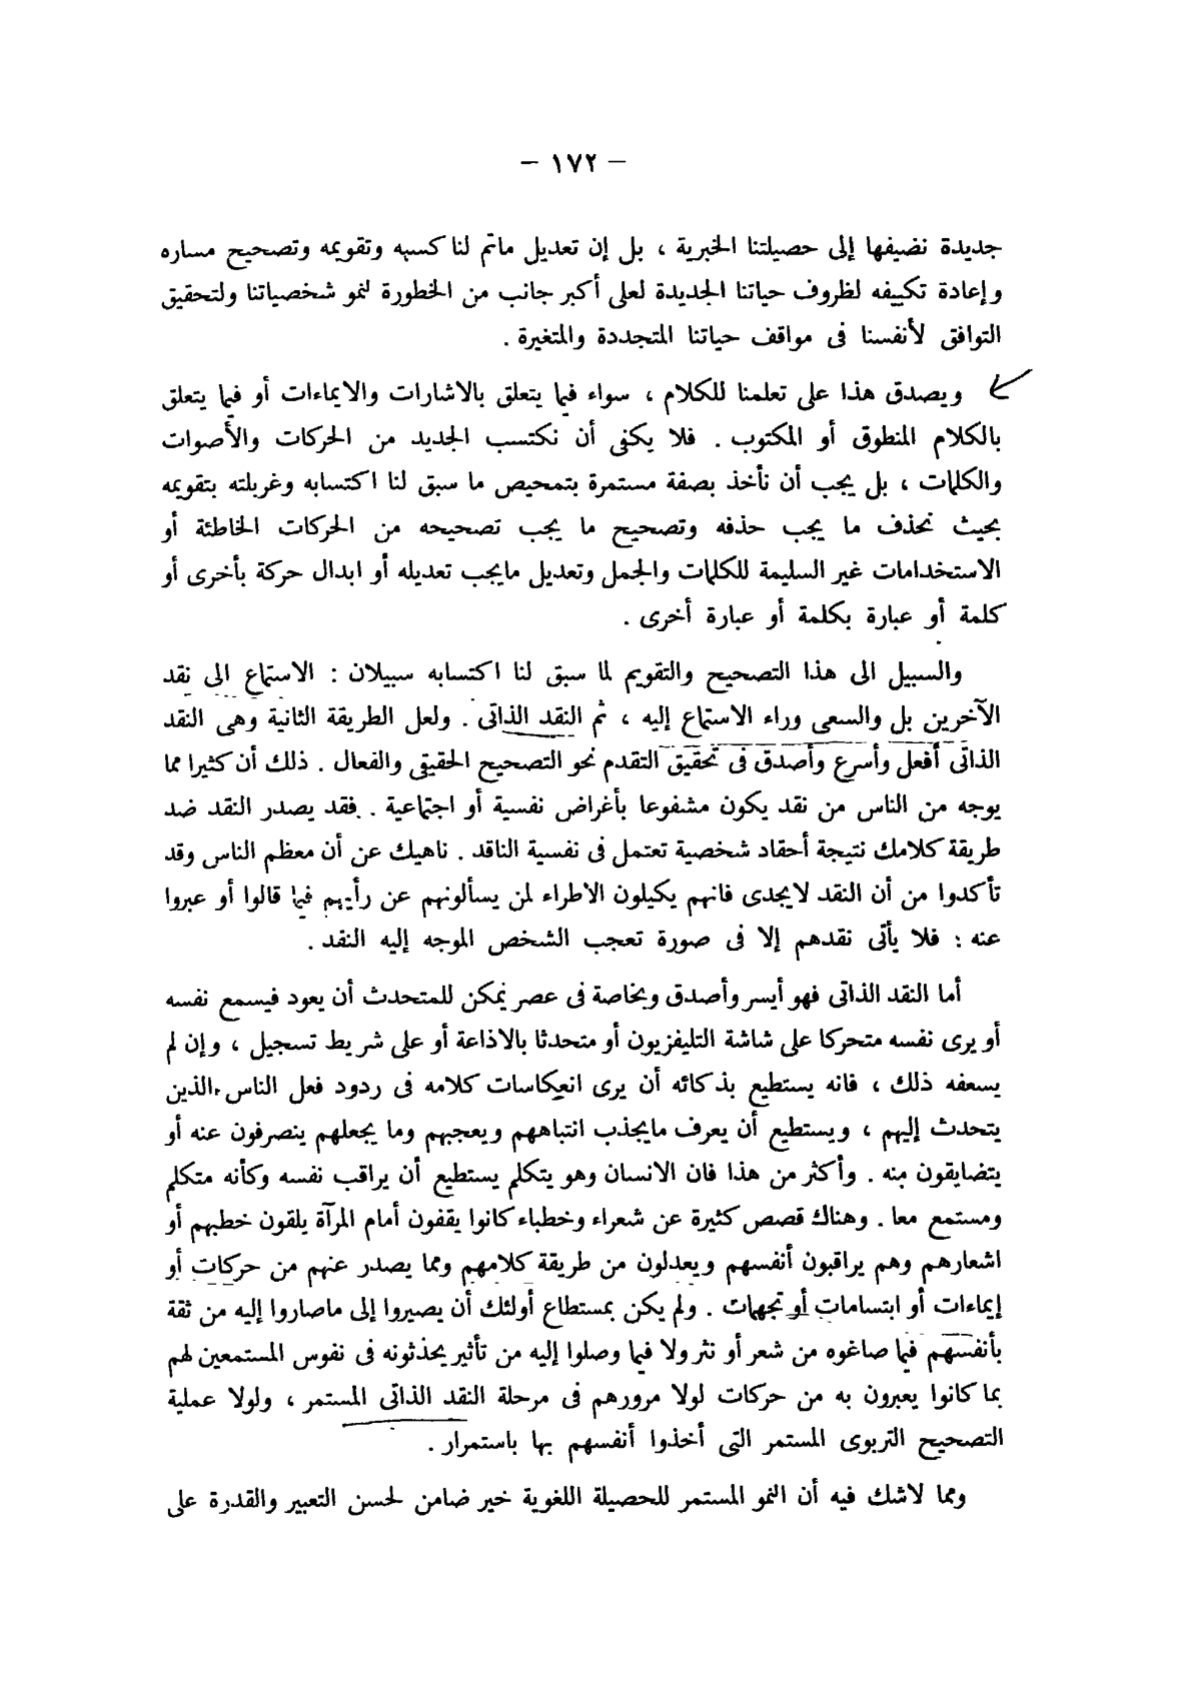 – ١٧٢ –
جديدة نضيفها إلى حصيلتنا الخبرية ، بل إن تعديل ماتم لنا كسبه وتقويمه وتصحيح مساره
وإعادة تكييفه لظروف حياتنا الجديدة لعلى أكبر جانب من الخطورة لنمو شخصياتنا ولتحقيق
التوافق لأنفسنا فى مواقف حياتنا المتجددة والمتغيرة .
ويصدق هذا على تعلمنا للكلام ، سواء فيما يتعلق بالاشارات والايماءات أو فيما يتعلق
بالكلام المنطوق أو المكتوب . فلا يكفى أن نكتسب الجديد من الحركات والأصوات
والكلمات ، بل يجب أن نأخذ بصفة مستمرة بتمحيص ما سبق لنا اكتسابه وغربلته بتقويمه
بحيث نحذف ما يجب حذفه وتصحيح ما يجب تصحيحه من الحركات الخاطئة أو
الاستخدامات غير السليمة للكلمات والجمل وتعديل مايجب تعديله أو ابدال حركة بأخرى أو
كلمة أو عبارة بكلمة أو عبارة أخرى .
والسبيل الى هذا التصحيح والتقويم لما سبق لنا اكتسابه سبيلان : الاستماع الى نقد
الآخرين بل والسعى وراء الاستماع إليه ، ثم النقد الذاتى . ولعل الطريقة الثانية وهى النقد
الذاتى أفعل وأسرع وأصدق فى تحقيق التقدم نحو التصحيح الحقيقى والفعال . ذلك أن كثيرا مما
يوجه من الناس من نقد يكون مشفوعا بأغراض نفسية أو اجتماعية . فقد يصدر النقد ضد
طريقة كلامك نتيجة أحقاد شخصية تعتمل فى نفسية الناقد . ناهيك عن أن معظم الناس وقد
تأكدوا من أن النقد لايجدى فانهم يكيلون الاطراء لمن يسألونهم عن رأيهم فيما قالوا أو عبروا
عنه : فلا يأتى نقدهم إلا فى صورة تعجب الشخص الموجه إليه النقد .
أما النقد الذاتى فهو أيسر وأصدق وبخاصة فى عصر يمكن للمتحدث أن يعود فيسمع نفسه
أو يرى نفسه متحركا على شاشة التليفزيون أو متحدثا بالاذاعة أو على شريط تسجيل ، وإن لم
يسعفه ذلك ، فانه يستطيع بذكائه أن يرى انعكاسات كلامه فى ردود فعل الناس الذين
يتحدث إليهم ، ويستطيع أن يعرف مايجذب انتباههم ويعجبهم وما يجعلهم ينصرفون عنه أو
يتضايقون منه . وأكثر من هذا فان الانسان وهو يتكلم يستطيع أن يراقب نفسه وكأنه متكلم
ومستمع معا . وهناك قصص كثيرة عن شعراء وخطباء كانوا يقفون أمام المرآة يلقون خطبهم أو
اشعارهم وهم يراقبون أنفسهم ويعدلون من طريقة كلامهم ومما يصدر عنهم من حركات أو
إيماءات أو ابتسامات أو تجهات . ولم يكن بمستطاع أولئك أن يصيروا إلى ماصاروا إليه من ثقة
بأنفسهم فيما صاغوه من شعر أو نثر ولا فيما وصلوا إليه من تأثير يحذثونه فى نفوس المستمعين لهم
بما كانوا يعبرون به من حركات لولا مرورهم فى مرحلة النقد الذاتى المستمر ، ولولا عملية
التصحيح التربوى المستمر التى أخذوا أنفسهم بها باستمرار .
ومما لاشك فيه أن النمو المستمر للحصيلة اللغوية خير ضامن لحسن التعبير والقدرة على